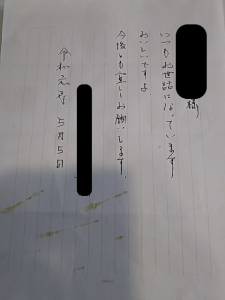 様
いつもお世話になっています
おいしいですよ
今後とも宜しくお願いします。
令和元年 5月5日